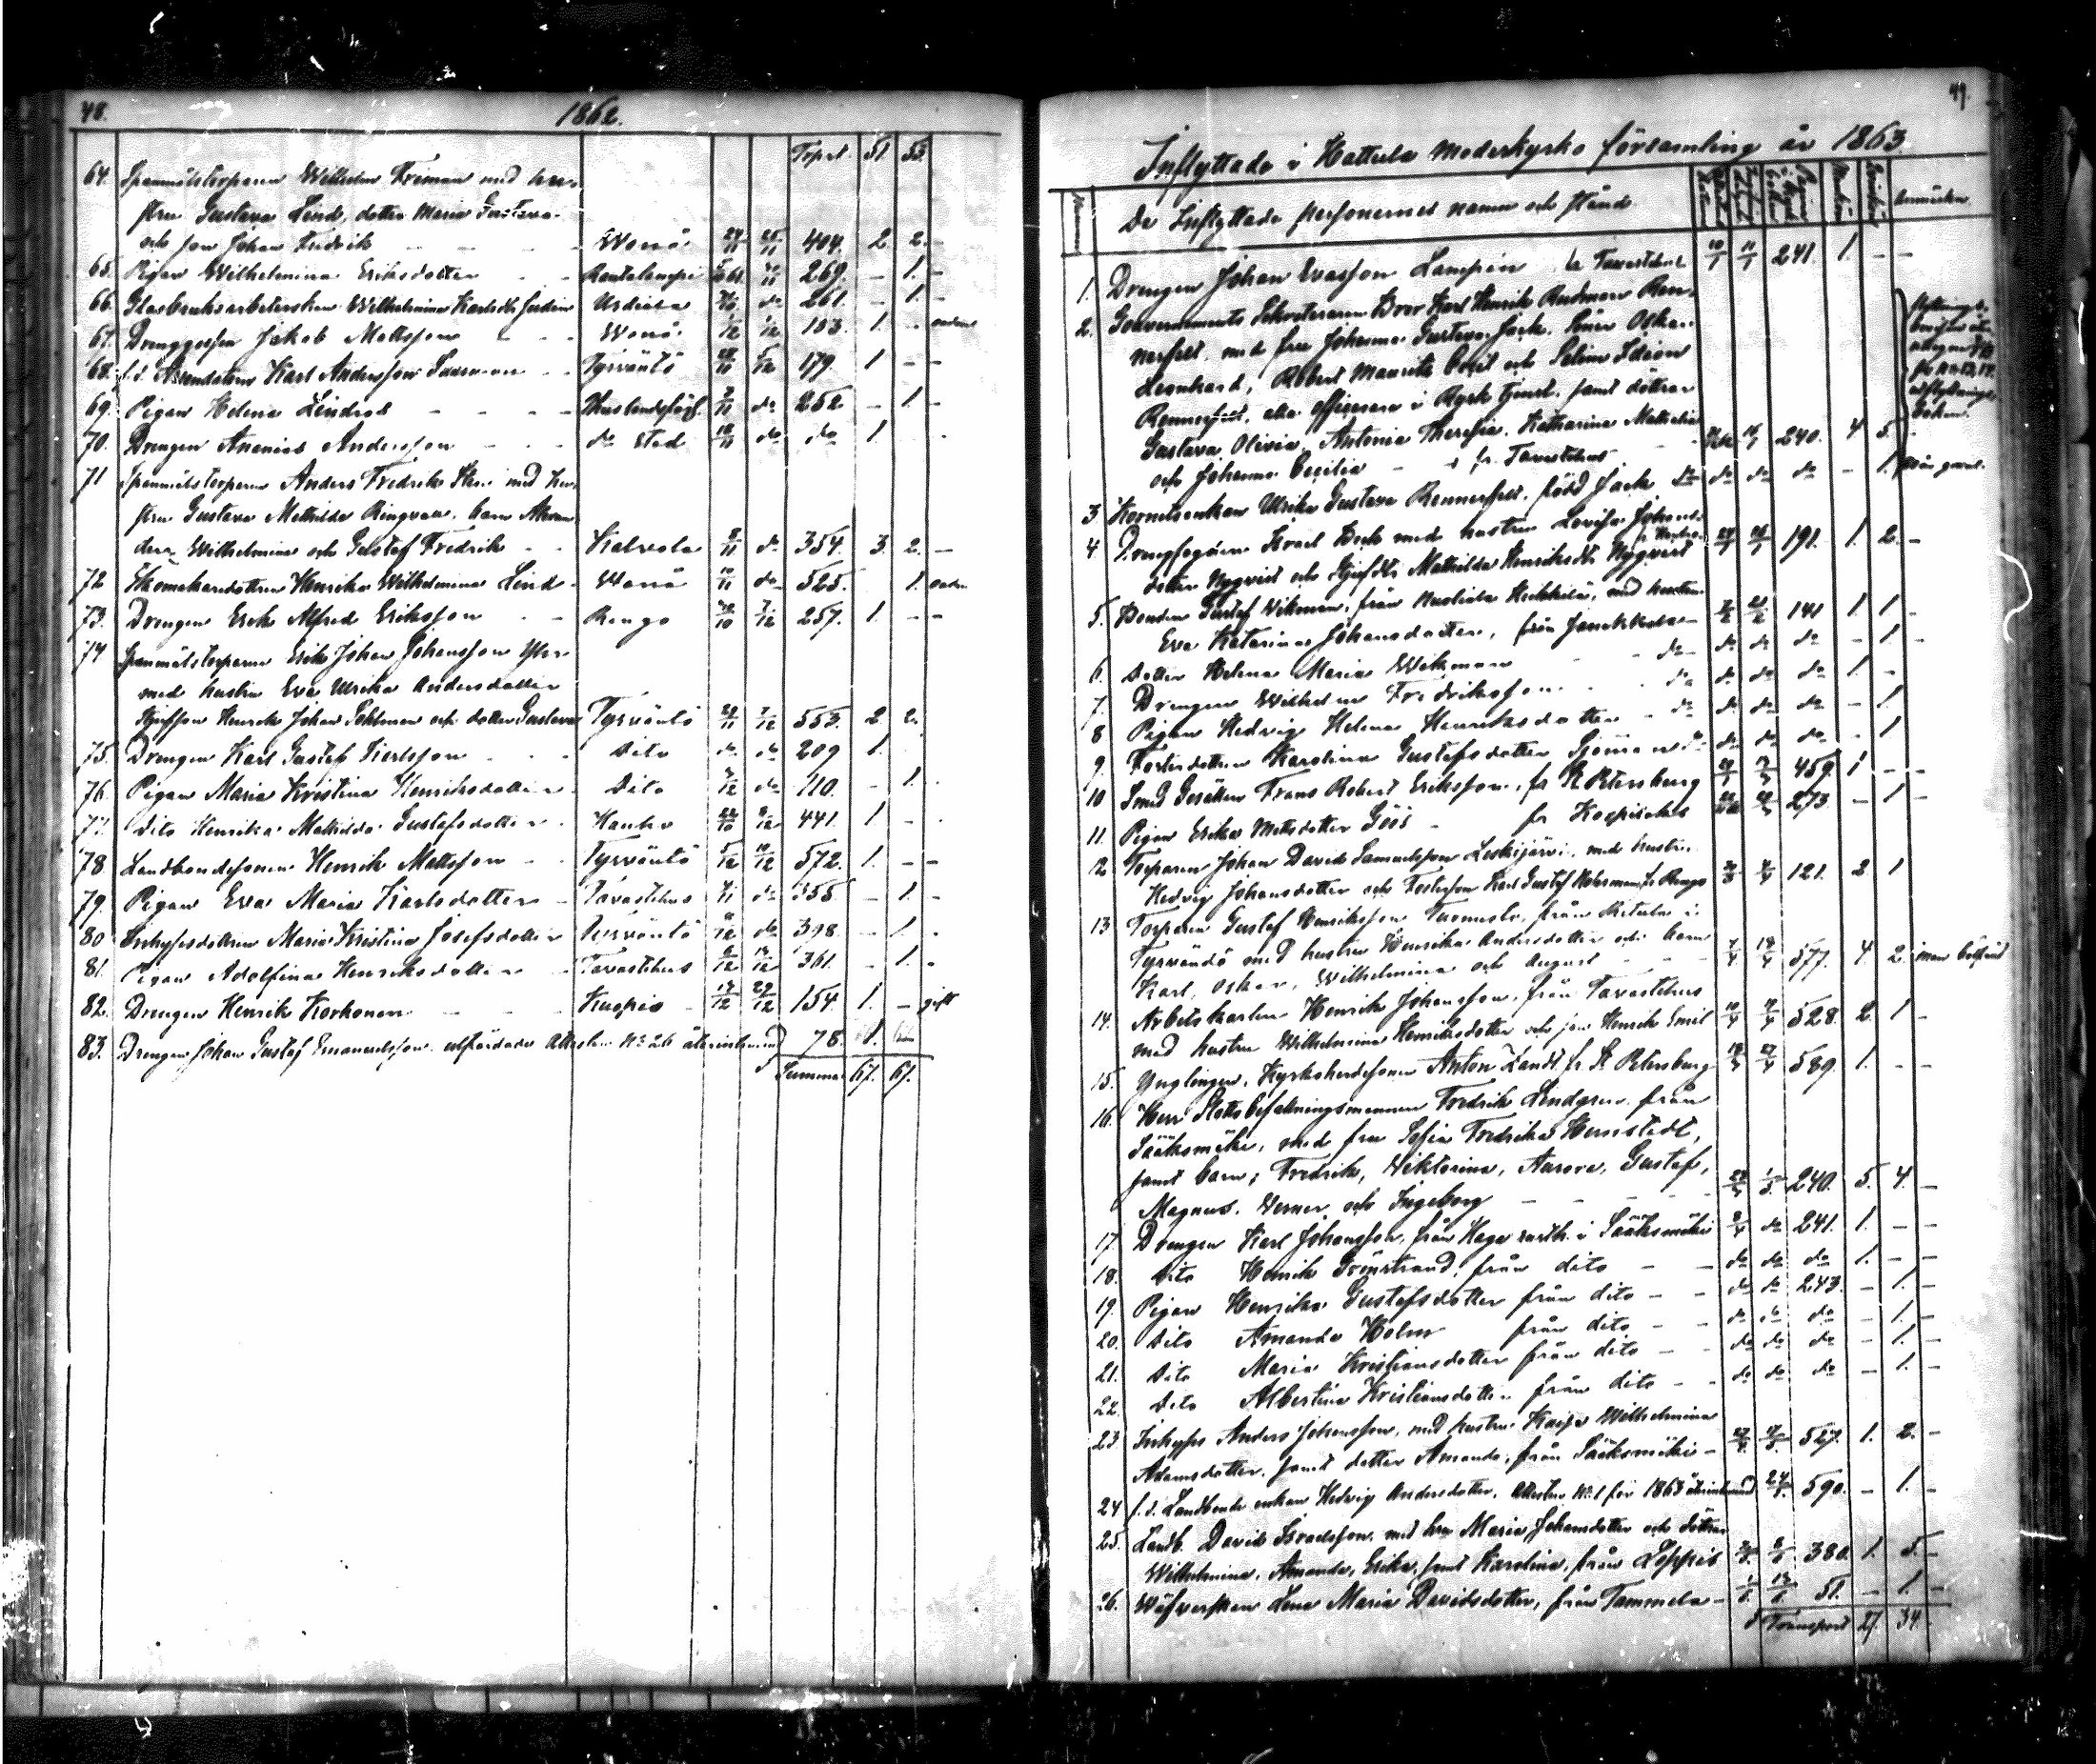 48.
1862.
Trpt 51 53.
64. Spanmålstorparen Wilhelm Friman med hu-
strun Gustava Lind, dotter Maria Gustava
och son Johan Fredrik - Wonå 24/11 25/11 404. 2 2. -
65. Pigan Wilhelmina Eriksdotter - Rautalampi 269. - 1. -
66. Glasbruksarbeterskan Wilhelmina Karlsdtr Urdiala do 261. - 1. -
67. Drenggossen Jakob Mattsson - Wonå 103. 1. -
68. f.d. Arrendatorn Karl Andersson - Tyrväntö 179. 1 - -
69. Pigan Helena Lindros - do 252 - 1. -
70. Drengen Ananias Andersson - do stad do do 1
71 Spanmålstorparen Anders Fredrik med hu-
strun Gustava Mathilda Ringvall, barn
Wilhelmina och Gustaf Fredrik - Kalvola do 354. 3. 2. -
72 Henrika Wilhelmina Lind - Wonå 10/11 do 525. 1.
73. Drengen Erik Alfred Eriksson - Rengo 7/12 257. 1. - -
74 Spanmålstorparen Erik Johan Johansson
med hustru Eva Ulrika Andersdotter
Styfson Henrik Johan och dotter Gustava Tyrväntö 7/12 553. 2 2.
75. Drengen Karl Gustaf Karlsson - Dito do do 209 1.
76. Pigan Maria Kristina Henriksdotter - Dito do 110. - 1.
77. Dito Henrika Mathilda Gustafsdotter - Hauho 441. 1 -
78 Landbondesonen Henrik Mattsson - Tyrväntö 5/12 10/12 572. 1. - -
79. Pigan Eva Maria Karlsdotter - Tavastehus do 355. - 1. -
80 Inhysesdottern Maria Kristina Josefsdotter Tyrväntö do 398. - 1. -
81. Pigan Adolfina Henriksdotter - Tavastehus 361. - 1. -
82. Drengen Henrik Korhonen - Kuopio 29/12 154. 1. - gift
83. Drengen Johan Gustaf Emanuelsson utfärdade Attesten No 26 återinlemnad 78. 1.
Summa 67. 67.
49.
Inflyttade i Hattula Moderkyrko församling år 1863
De Inflyttade personernes namn och stånd
1. Drengen Johan Evasson Lampén fr Tavastehus 10/1 11/1 241. 1. - -
2. Gouvernements Sekreteraren Karl Henrik Rudman Ren-
nerfelt med fru Johanna Gustava Jack. Söner Oskar
Leonhard, Robert Maurits och Selim Edvin
Rennerfelt, alla officerare i Rysk tjenst, samt döttrar
Gustava Olivia, Antonia Theresia, Katharina Mathilda
och Johanna Cecilia - fr. Tavastehus 240. 4 5.
3 Kornetsenkan Ulrika Gustava Rennerfelt, född Jack do do do do - 1.
4 Israel med hustru Lovisa Johans-
dotter Nyqvist och Mathilda Henriksdtr Nyqvist 191. 1. 2. -
5. Bonden Gustaf Wikman, från med hustru
Eva Katarina Johansdotter, från Janakkala 141 1 1 -
6. Dotter Helena Maria Wikman - do do do do - 1. -
7. Drengen Wilhelm Fredriksson - do do do do 1. -
8 Pigan Hedvig Helena Henriksdotter - do do do do - 1.
9. Karolina Gustafsdotter do do do do - 1
10 Smeds Gesällen Frans Robert Eriksson, fr St Petersburg 459. 1 - -
11. Pigan Erika Mattsdotter fr 273. - 1 -
12 Torparen Johan David Samuelsson Leskijärvi, med hustru
Hedvig Johansdotter och Fosterson Karl Gustaf fr Rengo 121. 2 1
13 Torparen Gustaf Henriksson från i
Tyrväntö med hustru Henrika Andersdotter och barn
Karl, Oskar, Wilhelmina och August - 577. 4. 2.
14. Arbetskarlen Henrik Johansson, från Tavastehus
med hustru Wilhelmina Henriksdotter och son Henrik Emil 528. 2. 1 -
15. Ynglingen, Kyrkoherdesonen Anton Zandt fr St Petersburg 589. 1. - -
16. Herr Slottsbefallningsmannen Fredrik Lindgren från
Sääksmäki, med fru Sofia Fredrika Hernstedt,
samt barn; Fredrik, Wiktorina, Aurora, Gustaf,
Magnus, Werner och Ingeborg - 240. 5. 4. -
17. Drengen Karl Johansson, från Haga i Sääksmäki do 241. 1. - -
18. Dito Henrik Grönstrand, från dito - do do do 1. - -
19. Pigan Henrika Gustafsdotter från dito - do do 243. - 1. -
20. Dito Amanda Holm från dito - do do do - 1. -
21. Dito Maria Kristiansdotter från dito - do do do - 1. -
22. Dito Albertina Kristiansdotter från dito - do do do - 1. -
23. Inhyses Anders Johansson, med hustru Kajsa Wilhelmina
Adamsdotter, samt dotter Amanda, från Sääksmäki - 527. 1. 2. -
24 f.d. Landbonde enkan Hedvig Andersdotter, Attesten No 1 för 1863 återinlemnad 590. - 1. -
25. Landb. David Israelsson, med hru Maria Johansdotter och döttrar
Wilhelmina, Amanda, Erika, samt Karolina, från Loppis 380. 1. 5. -
26. Wäfverskan Lena Maria Davidsdotter, från Tammela - 51. - 1. -
Transport 27. 34